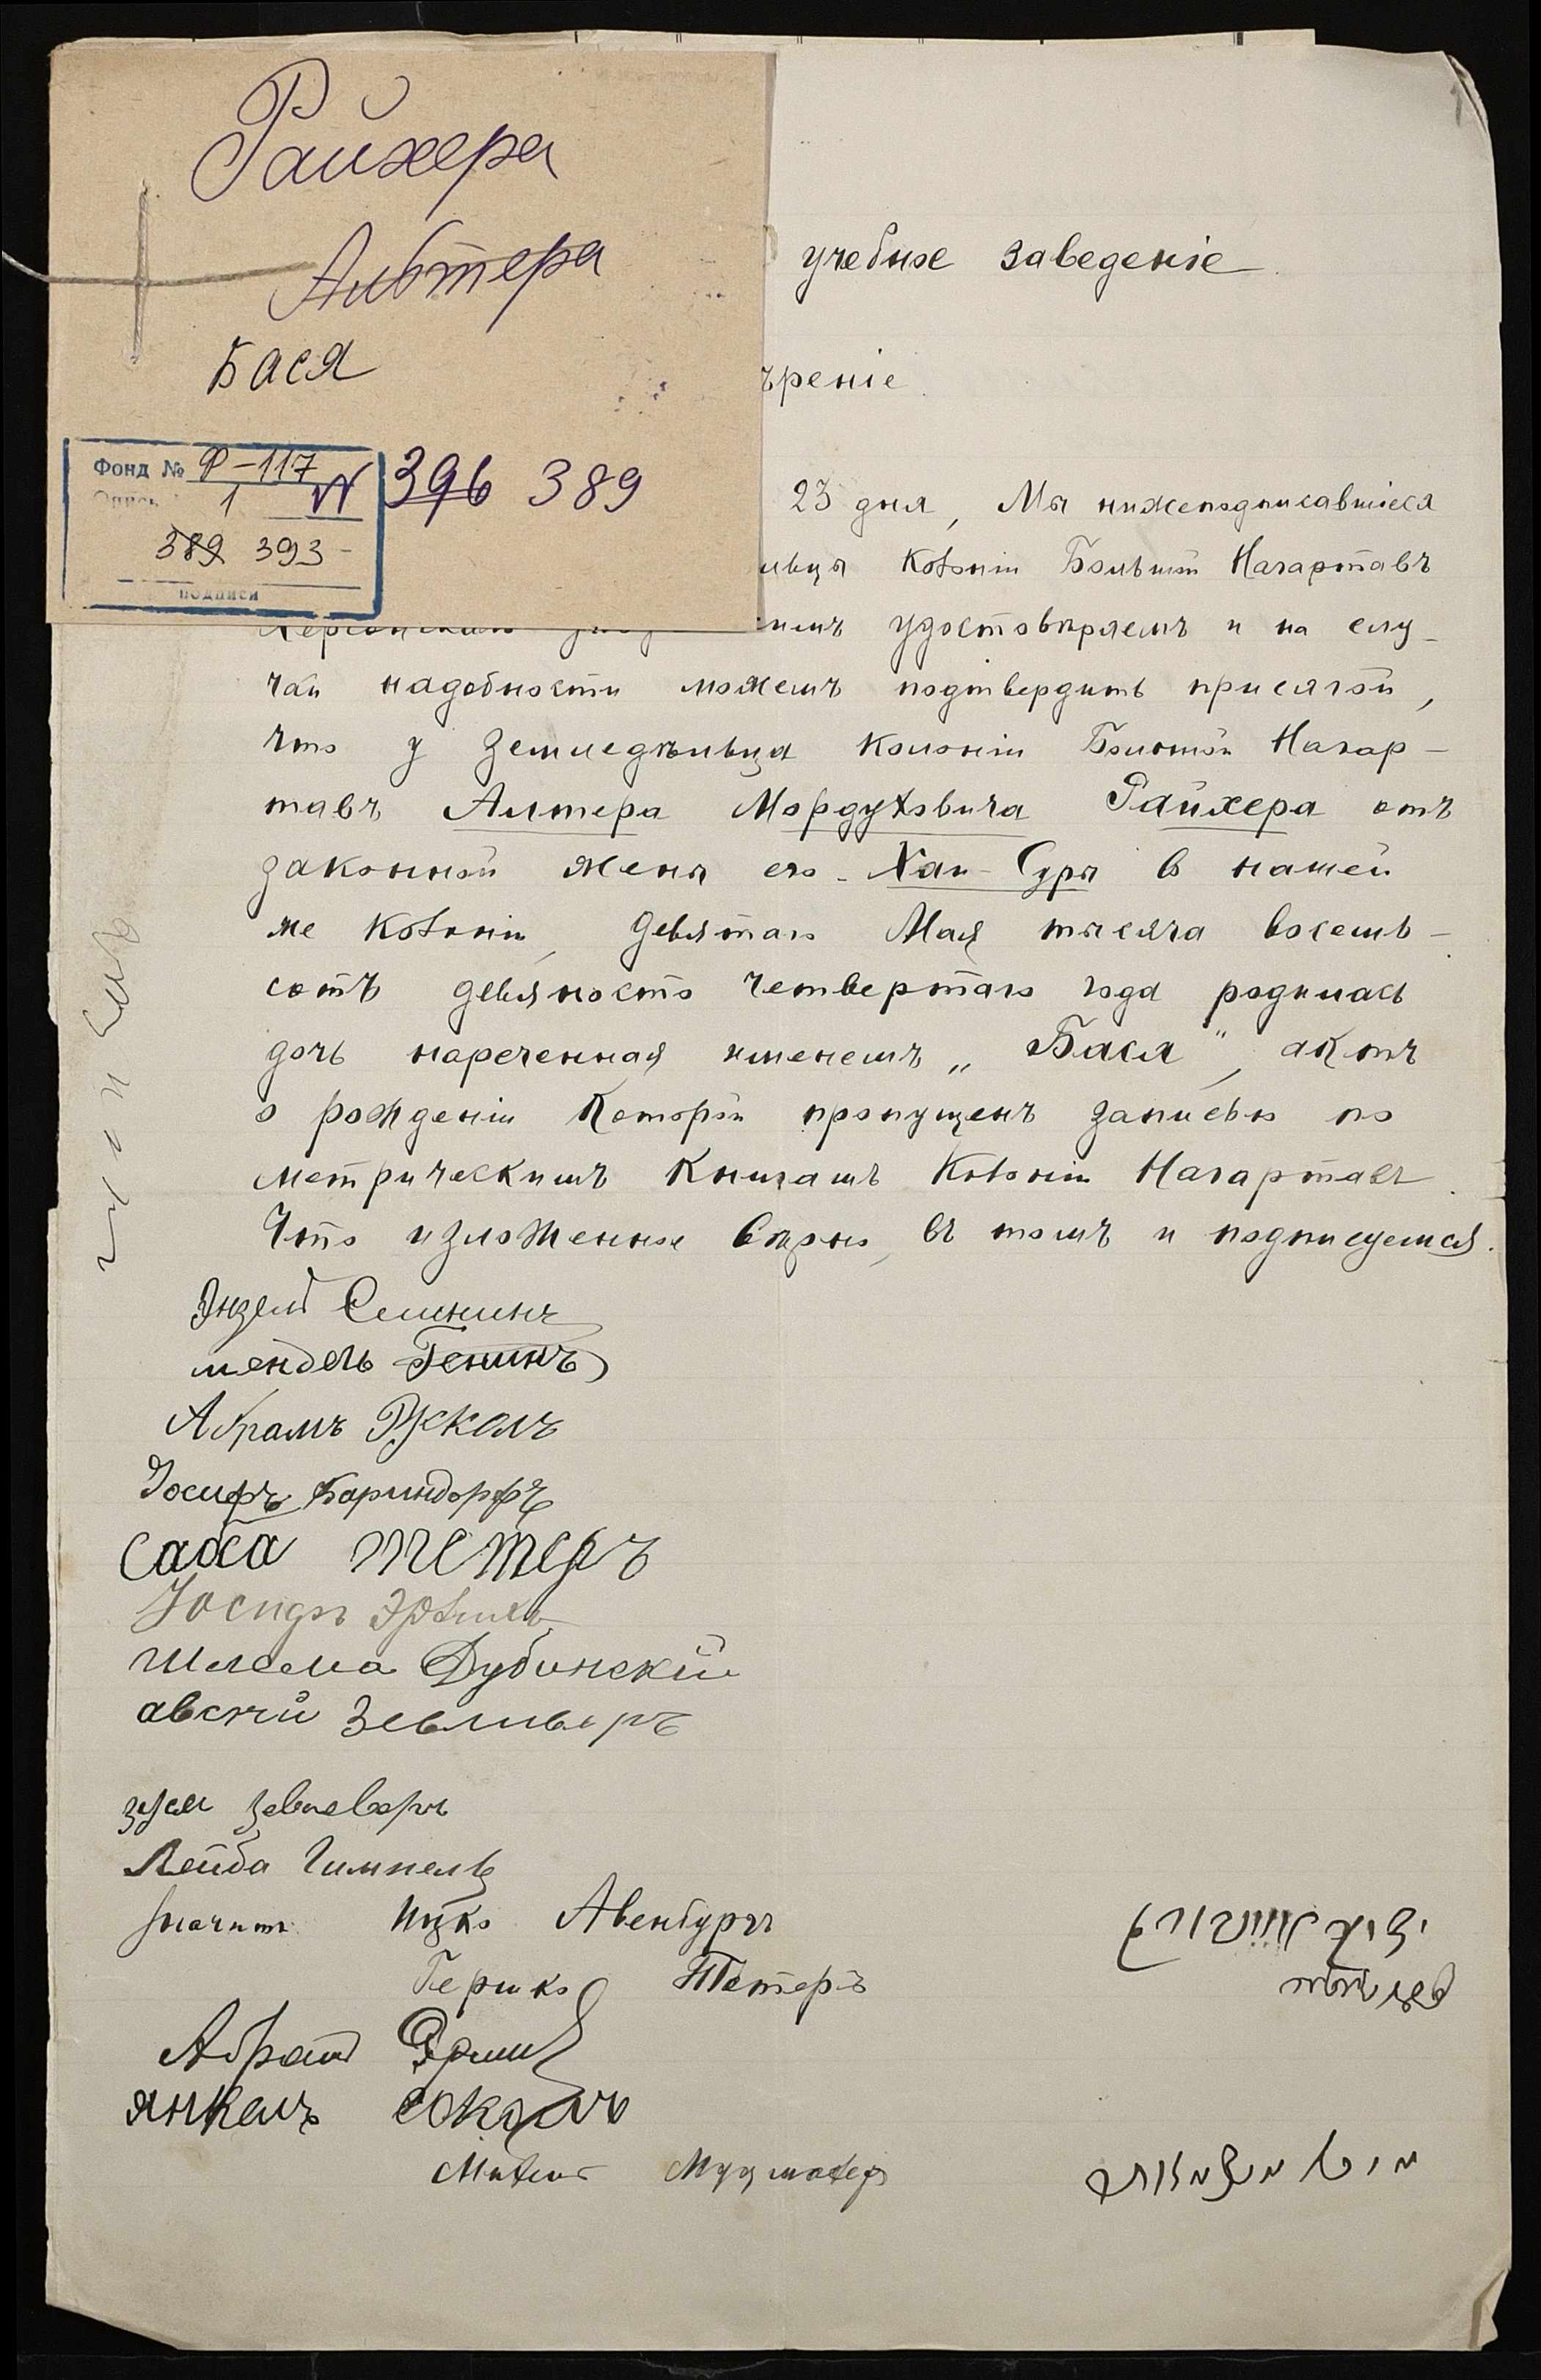 Райхера
Альтера
Бася
Фонд № Ф-117
Опись 1 N 396 389
389 393
подписи
учебное заведенiе
ѣренiе
23 дня, Мы нижеподписавшiеся
льцы Колонiи Большой Нагартавъ
Херсонскаго симъ удостовѣряемъ и на слу-
чай надобности можемъ подтвердить присягой,
что у земледѣльца колонiи Большой Нагар-
тавъ Алтера Мордуховича Райхера отъ
законной жены его Хаи-Суры в нашей
же колонiи, девятаго Мая тысяча восемь-
сотъ девяносто четвертаго года родилась
дочь нареченная именемъ „Бася", актъ
о рожденiи которой пропущенъ записью по
метрическимъ книгамъ колонiи Нагартавъ.
Что изложенное вѣрно, въ томъ и подписуемся.
мендель Генинъ
Абрамъ
Іосифъ Бариндорфъ
саха тетеръ
Іосифъ
Шлема Дубинскiй
авсей Зевлеверъ
зуся зевлеверъ
Лейба Гимпель
значитъ Ицко Авенбургъ
Гершко Тетеръ
Абрам
янкель соколъ